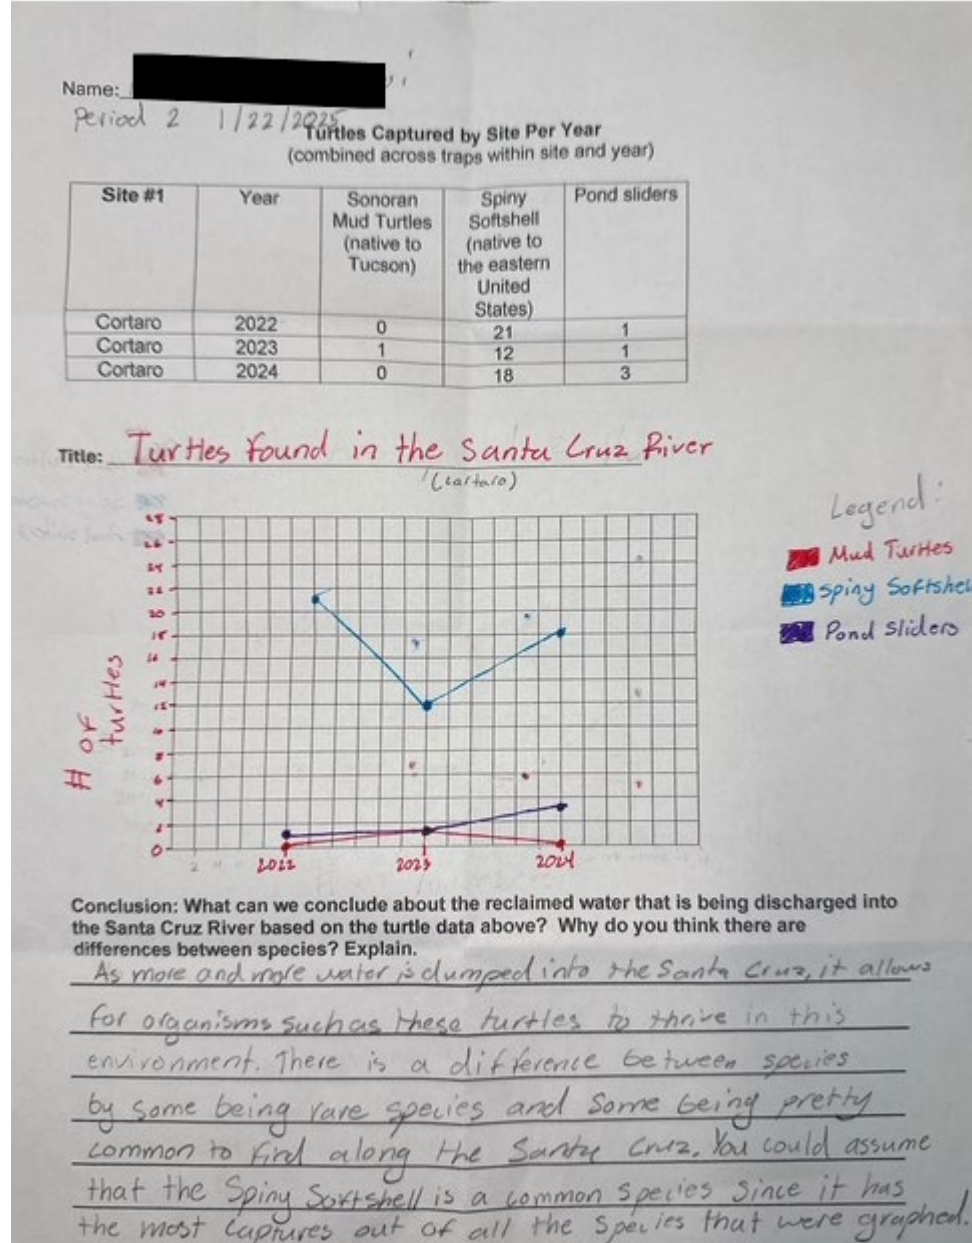 Name:
Period 2 1/22/2025
Turtles Captured by Site Per Year
(combined across traps within site and year)
Site #1 Year Sonoran Mud Turtles (native to Tucson) Spiny Softshell (native to the eastern United States) Pond sliders
Cortaro 2022 0 21 1
Cortaro 2023 1 12 1
Cortaro 2024 0 18 3
Title: Turtles found in the Santa Cruz River
(Cortaro)
Legend:
Mud Turtles
Spiny Softshel
Pond Sliders
# of turtles
24
22
20
18
14
8
6
4
2
0
2022 2023 2024
Conclusion: What can we conclude about the reclaimed water that is being discharged into
the Santa Cruz River based on the turtle data above? Why do you think there are
differences between species? Explain.
As more and more water is dumped into the Santa Cruz, it allows
for organisms such as these turtles to thrive in this
environment. There is a difference between species
by some being rare species and some being pretty
common to find along the Santa Cruz. You could assume
that the Spiny Softshell is a common species since it has
the most captures out of all the species that were graphed.